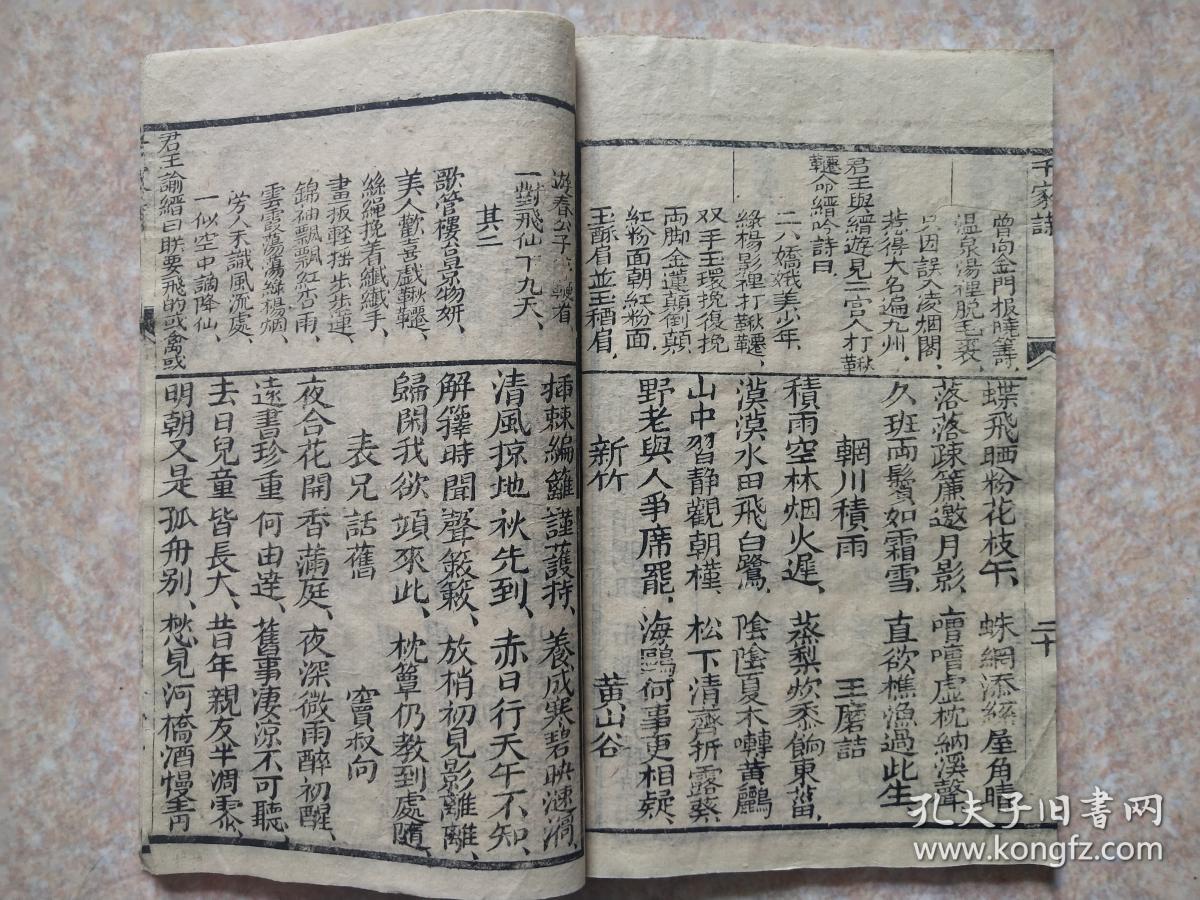 千家詩
曾向金門报曉籌、
温泉湯裡脱毛裘、
只因誤入凌烟閣、
惹得大名遍九州、
君王與縉遊見二宮人打鞦
韆命縉吟詩曰
二八嬌娥美少年、
綠楊影裡打鞦韆、
双手玉環挽復挽
両脚金蓮顛倒顛、
紅粉面朝紅粉面、
玉酥肩並玉酥肩、
蝶飛晒粉花枝午、蛛網添絲屋角晴、
落落疎簾邀月影、嘈嘈虚枕納溪聲、
久班両鬢如霜雪、直欲樵漁過此生、
輞川積雨 王磨詰
積雨空林烟火遲、蒸梨炊黍餉東菑、
漠漠水田飛白鷺、陰陰夏木囀黄鸝
山中習静觀朝槿、松下清齋折露葵、
野老與人爭席罷、海鷗何事更相疑、
新竹 黄山谷
二十
遊春公子 鞭看、
一對飛仙下九天、
其二
歌管樓台景物妍、
美人歡喜戯鞦韆、
絲繩挽着纖纖手、
畫扳軽拙步步蓮、
錦袖飄飄紅杏雨、
雲霞蕩蕩綠楊烟、
旁人不識風流處、
一似空中謫降仙、
君王諭縉曰朕要飛的或禽或
揷棘編籬謹護持、養成寒碧映漣漪、
清風掠地秋先到、赤日行天午不知、
解籜時聞聲簌簌、放梢初見影離離、
歸閑我欲頻來此、枕簟仍教到處隨、
表兄話舊 竇叔向
夜合花開香滿庭、夜深微雨醉初醒、
遠書珍重何由達、舊事凄凉不可聽、
去日兒童皆長大、昔年親友半凋零、
明朝又是孤舟别、愁見河橋酒幔青
孔夫子旧書网
www.kongfz.com